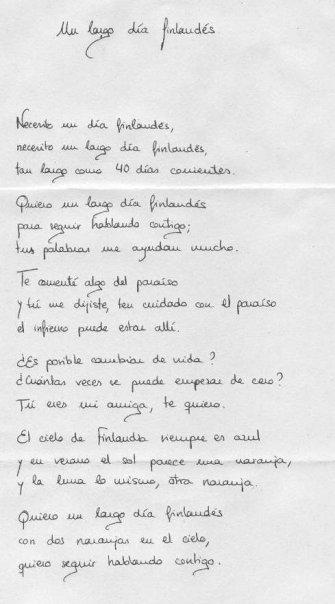 Un largo día finlandés
Necesito un día finlandés,
necesito un largo día finlandés,
tan largo como 40 días corrientes.
Quiero un largo día finlandés
para seguir hablando contigo;
tus palabras me ayudan mucho.
Te comenté algo del paraíso
y tú me dijiste, ten cuidado con el paraíso
el infierno puede estar allí.
¿Es posible cambiar de vida?
¿Cuántas veces se puede empezar de cero?
Tú eres mi amiga, te quiero.
El cielo de Finlandia siempre es azul
y en verano el sol parece una naranja,
y la luna lo mismo, otra naranja.
Quiero un largo día finlandés
con dos naranjas en el cielo,
quiero seguir hablando contigo.